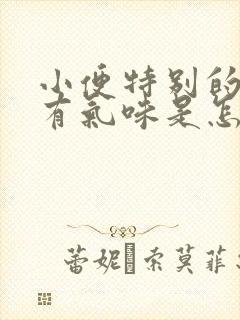 小便特别的
有氣味是怎
蕾妮 索莫菲